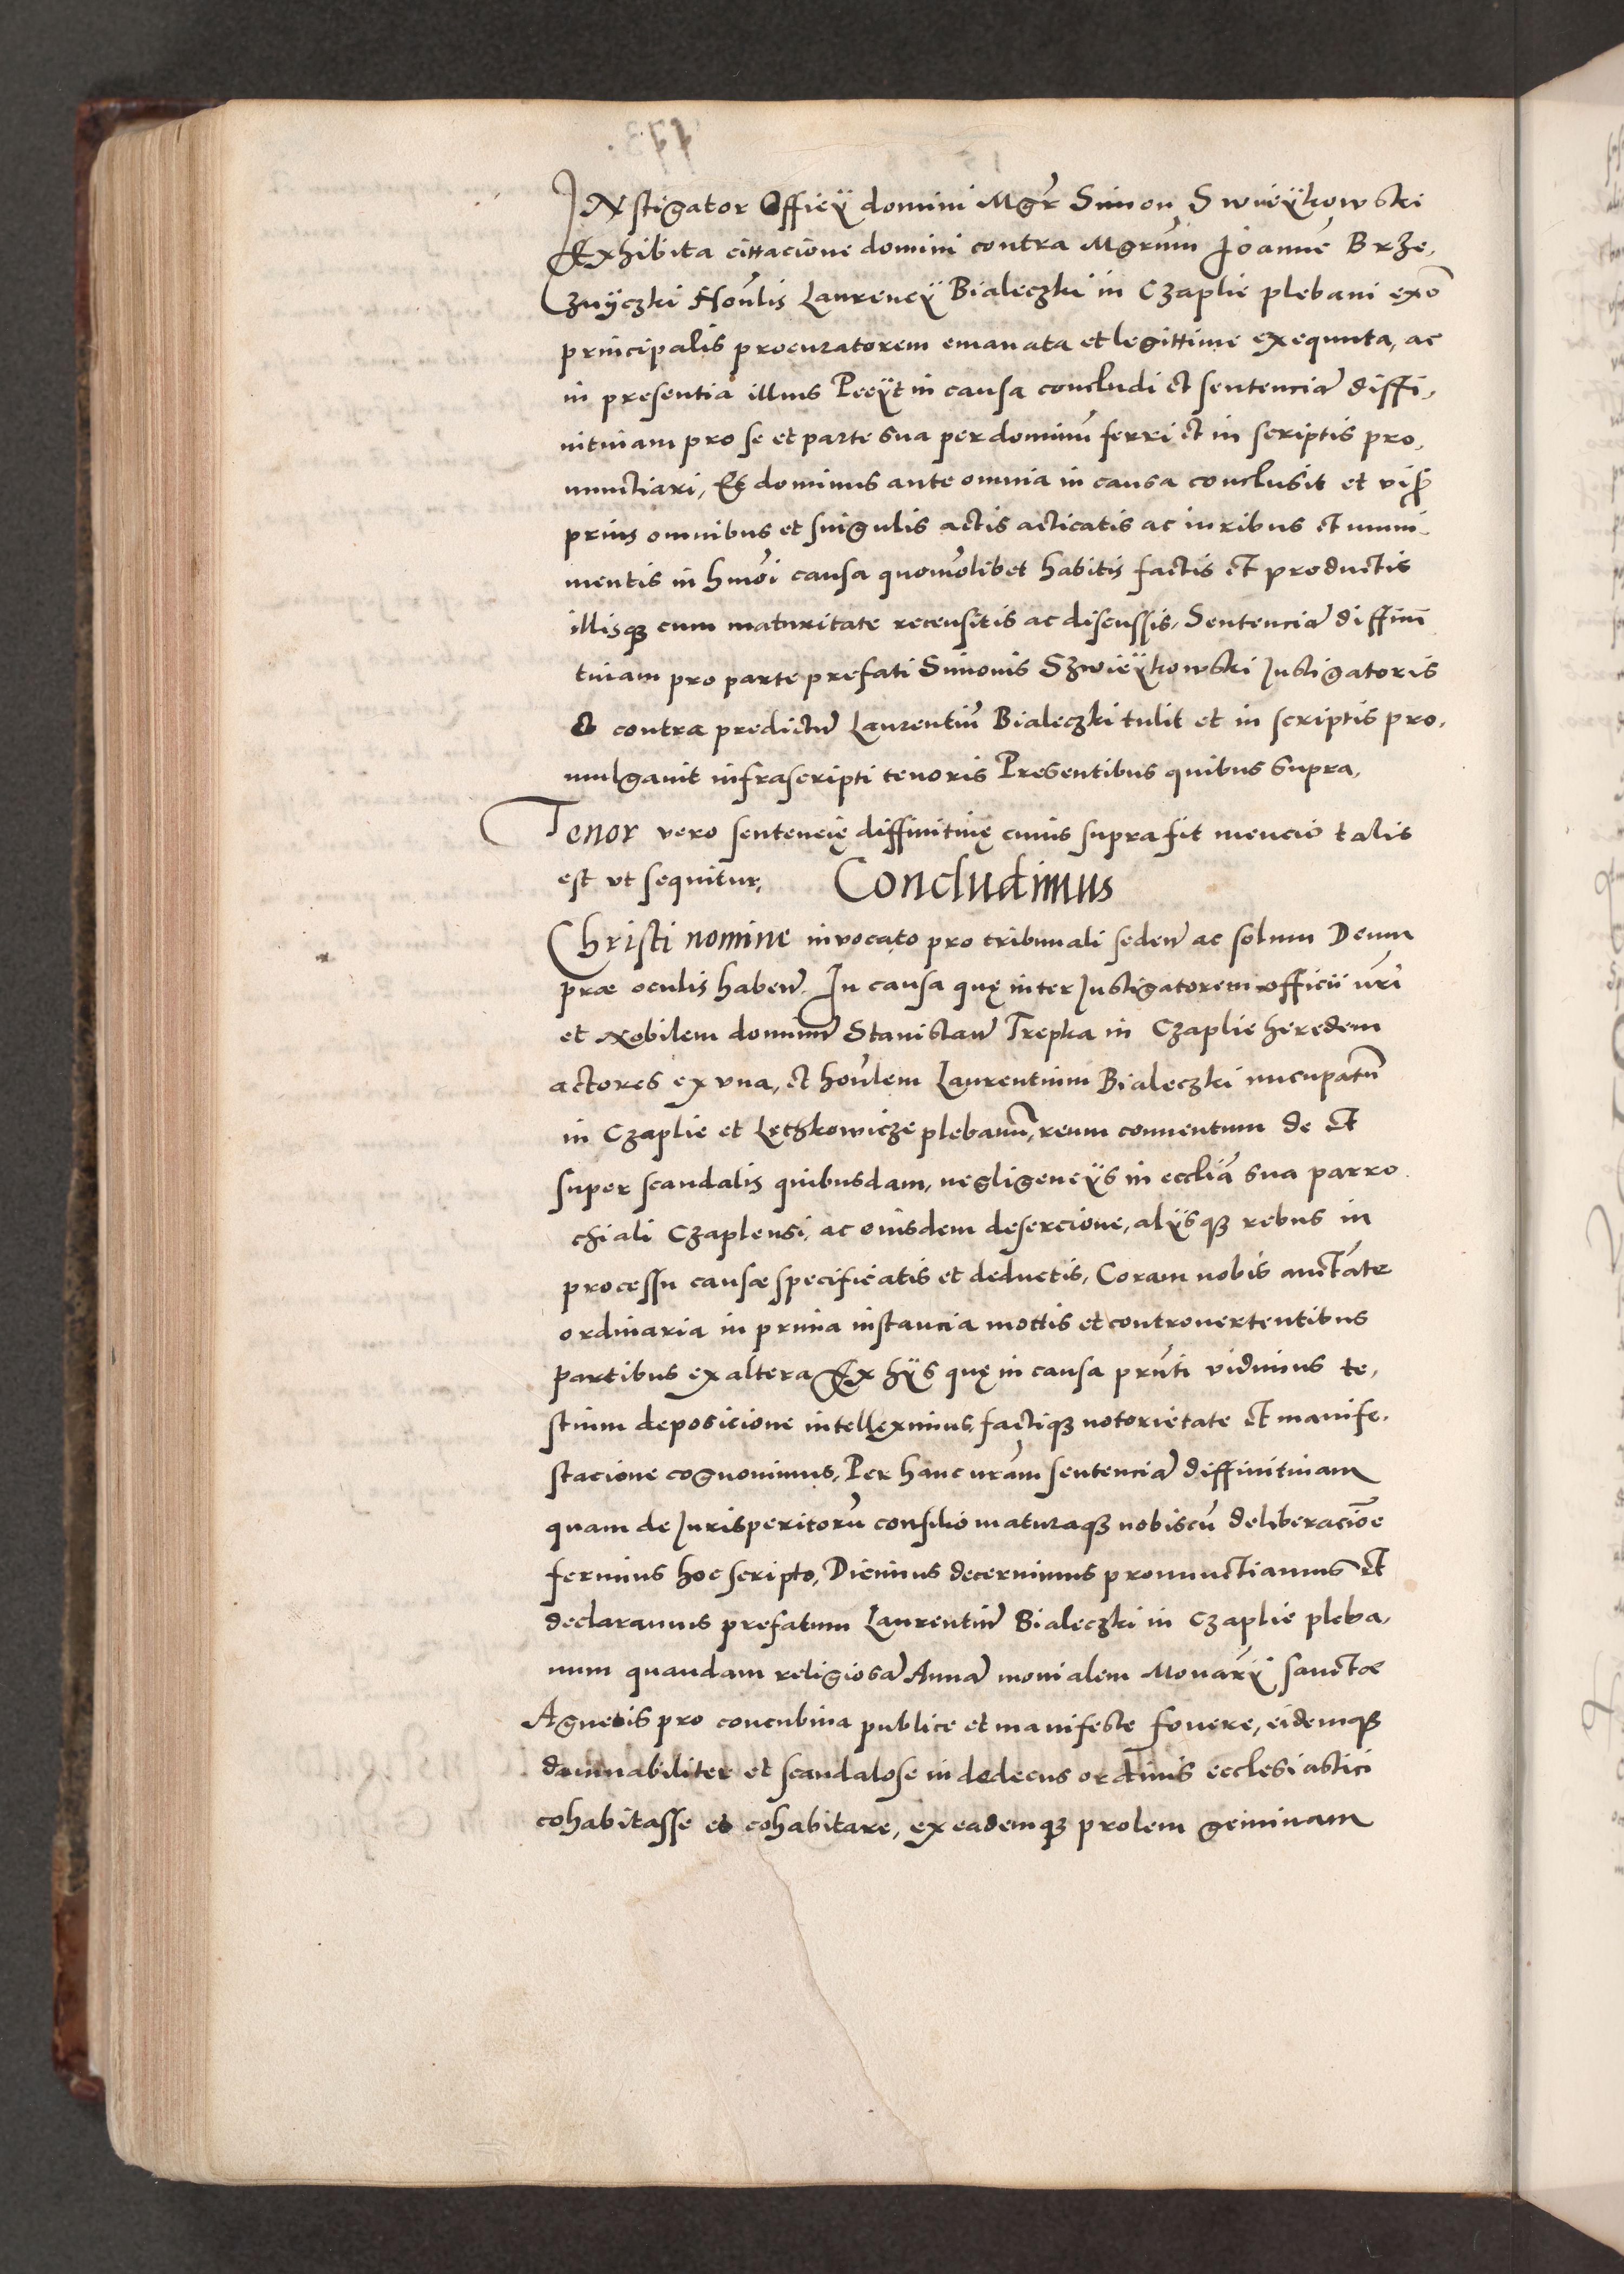 INstigator Officÿ domini Mgr̃ Simon Swieÿkowski
Exhibita cittacione domini contra Mgrũm Joannẽ Brze,
znÿczki Honõlis Laurencÿ Bialeczki in Czaplie plebani exõ
principalis procuratorem emanata et legittime exequuta, ac
in presentia illius Peeÿt in causa concludi et sentenciã diffi,
nitiuam pro se et parte sua per dominũ ferri et in scriptis pro,
nunctiari, Et dominus ante omnia in causa conclusit et
prius omnibus et singulis actis acticatis ac iuribus et muni-
mentis in hmõi causa quomõlibet habitis factis et productis
illisqꝫ cum maturitate recensitis ac discussis, Sentenciã diffini
tiuam pro parte prefati Simonis Szwieÿkowski Instigatoris
et contra predictũ Laurentiũ Bialeczki tulit et in scriptis pro,
mulgauit infrascripti tenoris Presentibus quibus supra,
Tenor vero sentencię diffinitiuę cuius supra fit mencio talis
est vt sequitur, Concludimus
Christi nomine invocato pro tribunali seden̄ ac solum Deum
præ oculis haben̄. In causa quę inter Instigatorem officii nr̃i
et Nobilem dominũ Stanislaũ Trepka in Czaplie heredem
actores ex vna, et honõlem Laurentium Bialeczki nucupatũ
in Czaplie et Letzkowicze plebanũ, reum conuentum de et
super scandalis quibusdam, negligencÿs in eccliã sua parro
chiali Czaplensi, ac eiusdem desercione, alÿsqꝫ rebus in
processu causæ specificatis et deductis, Coram nobis auctãte
ordinaria in prima instancia mottis et controuertentibus
partibus ex altera Ex hÿs quę in causa prñti vidimus te,
stium deposicione intelleximus, factiqꝫ notorietate et manife,
stacione cognouimus, Per hanc nr̃am sentenciã diffinitiuam
quam de Jurisperitorũ consilio maturaqꝫ nobiscũ deliberaciõe
ferimus hoc scripto, Dicimus decernimus pronunctiamus et
declaramus prefatum Laurentiũ Bialeczki in Czaplie pleba,
num quandam religiosã Annã monialem Monãrÿ sanctæ
Agnetis pro concubina publice et manifeste fovere, eidemqꝫ
damnabiliter et scandalose in dedecus ordinis ecclesiastici
cohabitasse et cohabitare, ex eademqꝫ prolem geminam